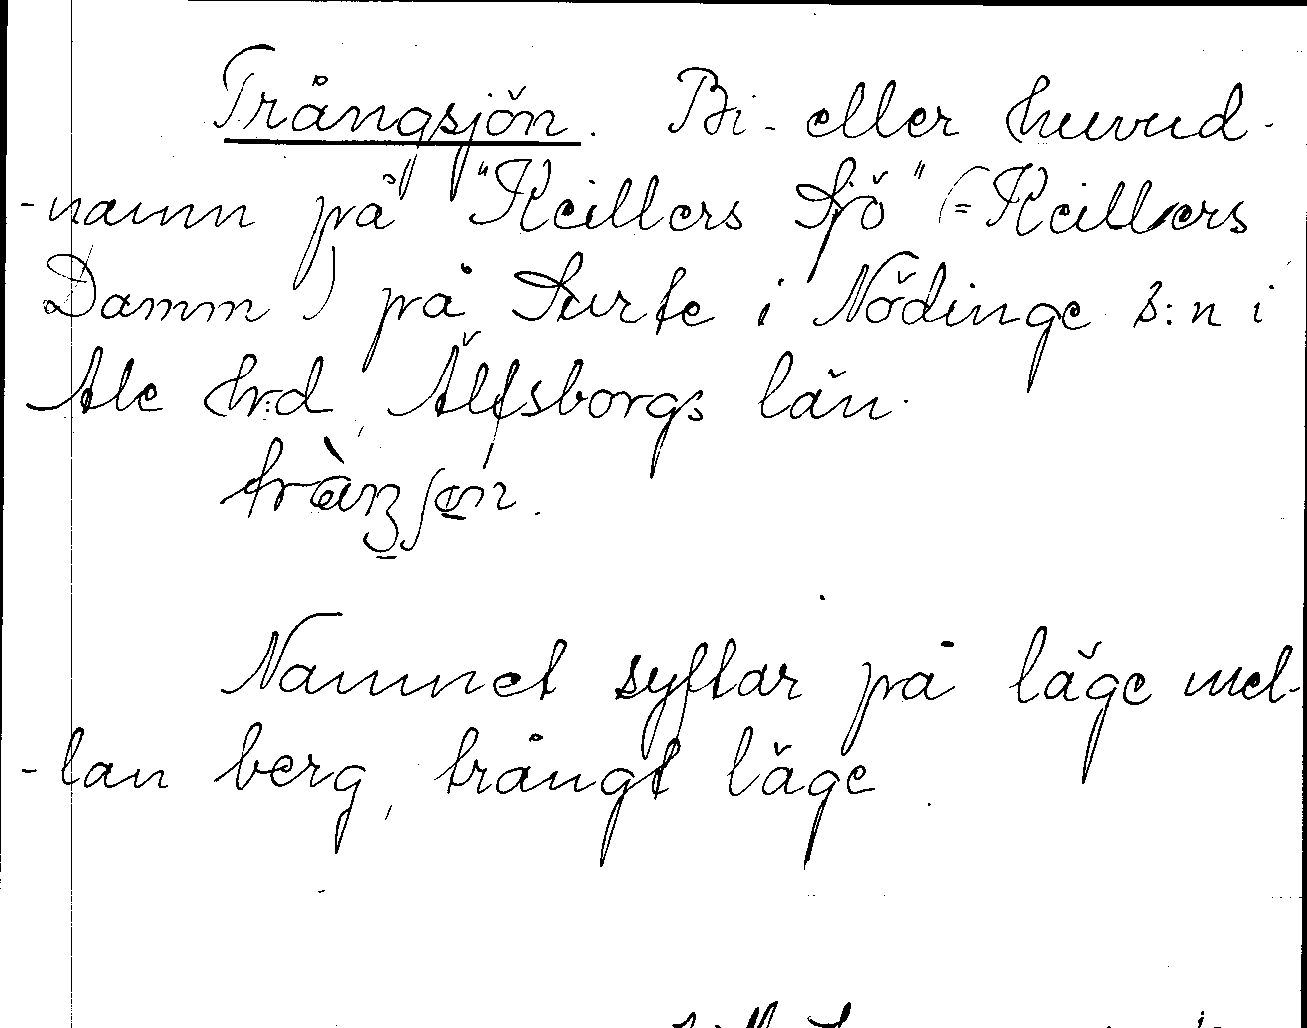 Trångsjön. Bi- eller huvud-
-namn på "Keillers Sjö" (= Keillers
Damm) på Surte i Nödinge s:n i
Ale hrd, Älfsborgs län.
Namnet syftar på läge mel-
-lan berg, trångt läge.